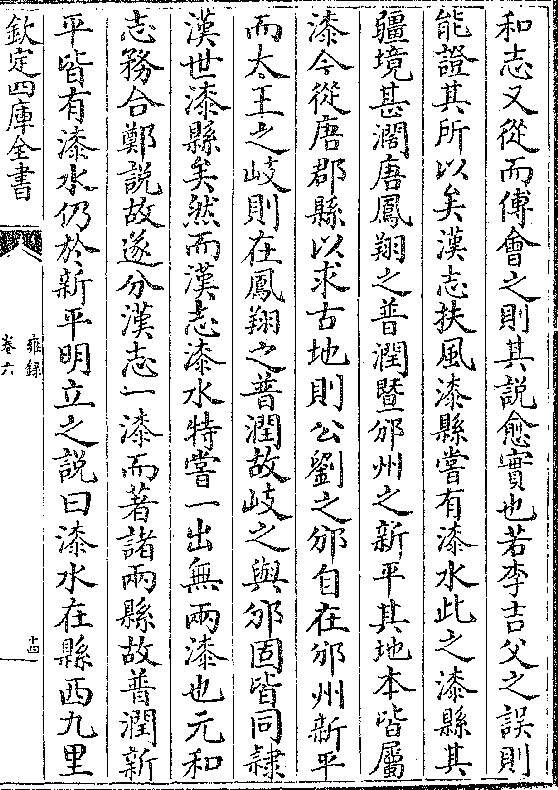 和志又從而傅會之則其說愈實也若李吉父之誤則
能證其所以矣漢志扶風漆縣嘗有漆水此之漆縣其
疆境甚濶唐鳳翔之普潤暨邠州之新平其地本皆屬
漆今從唐郡縣以求古地則公劉之邠自在邠州新平
而太王之岐則在鳳翔之普潤故岐之與邠固皆同隷
漢世漆縣矣然而漢志漆水特嘗一出無兩漆也元和
志務合鄭說故遂分漢志一漆而著諸兩縣故普潤新
平皆有漆水仍於新平明立之說曰漆水在縣西九里
欽定四庫全書
雍録
卷六
十四